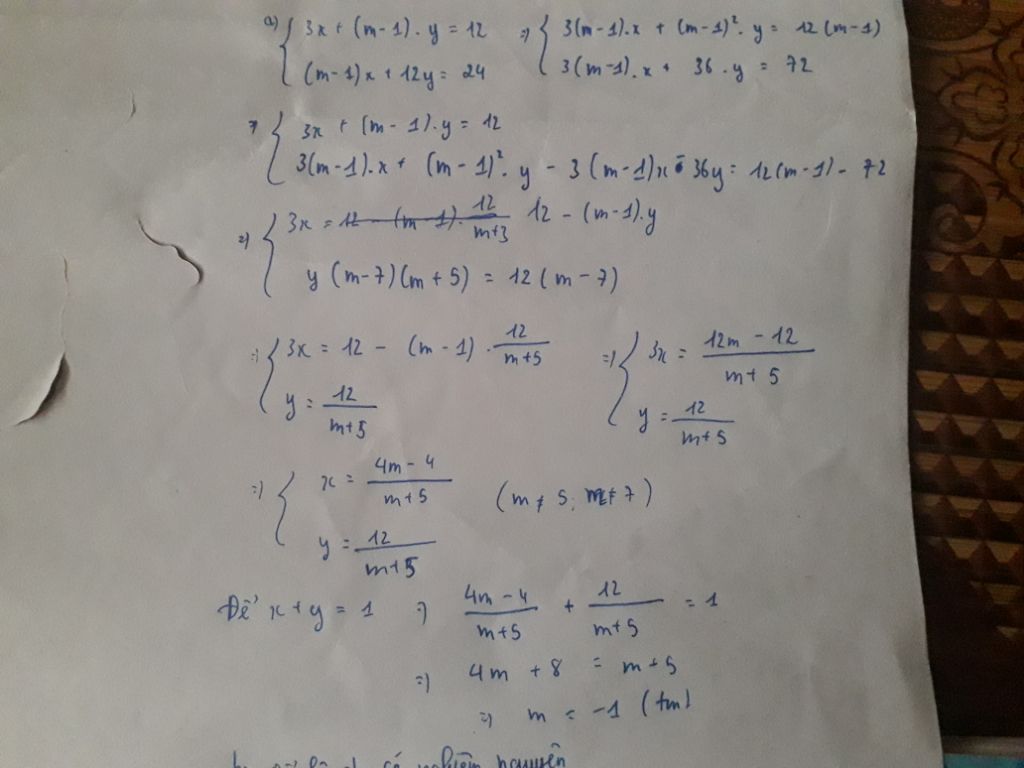 a) { 3x + (m-1).y = 12 => { 3(m-1).x + (m-1)². y = 12(m-1)
(m-1)x + 12y = 24 3(m-1).x + 36.y = 72
=> { 3x + (m-1).y = 12
3(m-1).x + (m-1)².y - 3(m-1)x - 36y = 12(m-1) - 72
=> { 3x = 12 - (m-1). 12/(m+3) 12 - (m-1).y
y(m-7)(m+5) = 12(m-7)
=> { 3x = 12 - (m-1). 12/(m+5) => { 3x = (12m-12)/(m+5)
y = 12/(m+5) y = 12/(m+5)
=> { x = (4m-4)/(m+5) (m ≠ 5; m ≠ 7)
y = 12/(m+5)
Để x+y = 1 => (4m-4)/(m+5) + 12/(m+5) = 1
=> 4m + 8 = m+5
=> m = -1 (tm)
có nghiệm nguyên